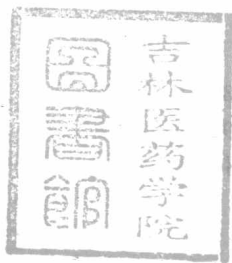 吉林医药学院
图書館